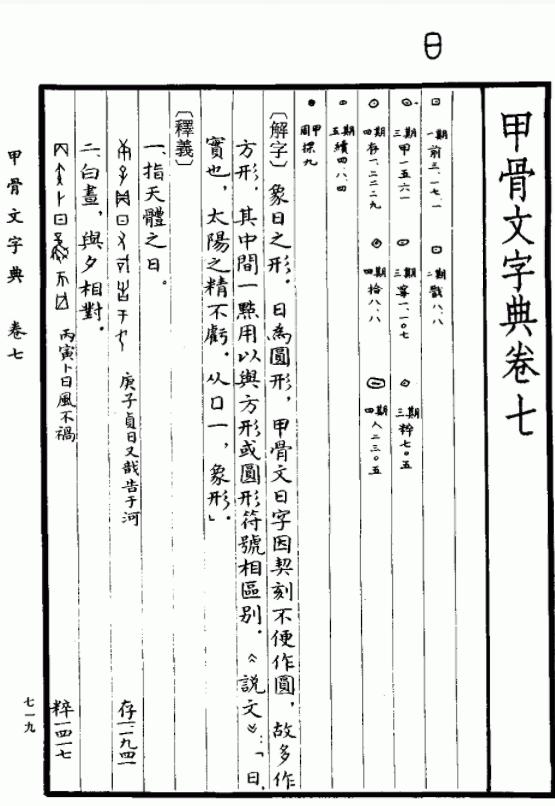 日
甲骨文字典卷七
一期 前三.一七.一 二期 戩八.八
三期 甲一五六一 三期 寧一.一〇七 三期 粹七〇五
四期 存一.二二二九 四期 拾八.八 四期 人二三〇五
五期 續四.八.四
周甲 探九
〔解字〕象日之形。日為圓形,甲骨文日字因契刻不便作圓,故多作
方形。其中間一點用以與方形或圓形符號相區別。《說文》:「日,
實也,太陽之精不虧。从囗一,象形。」
〔釋義〕
一、指天體之日。
庚子貞日又戠告于河 存一.一九四一
二、白晝,與夕相對。
丙寅卜日風不禍 粹一四一七
甲骨文字典 卷七
七一九